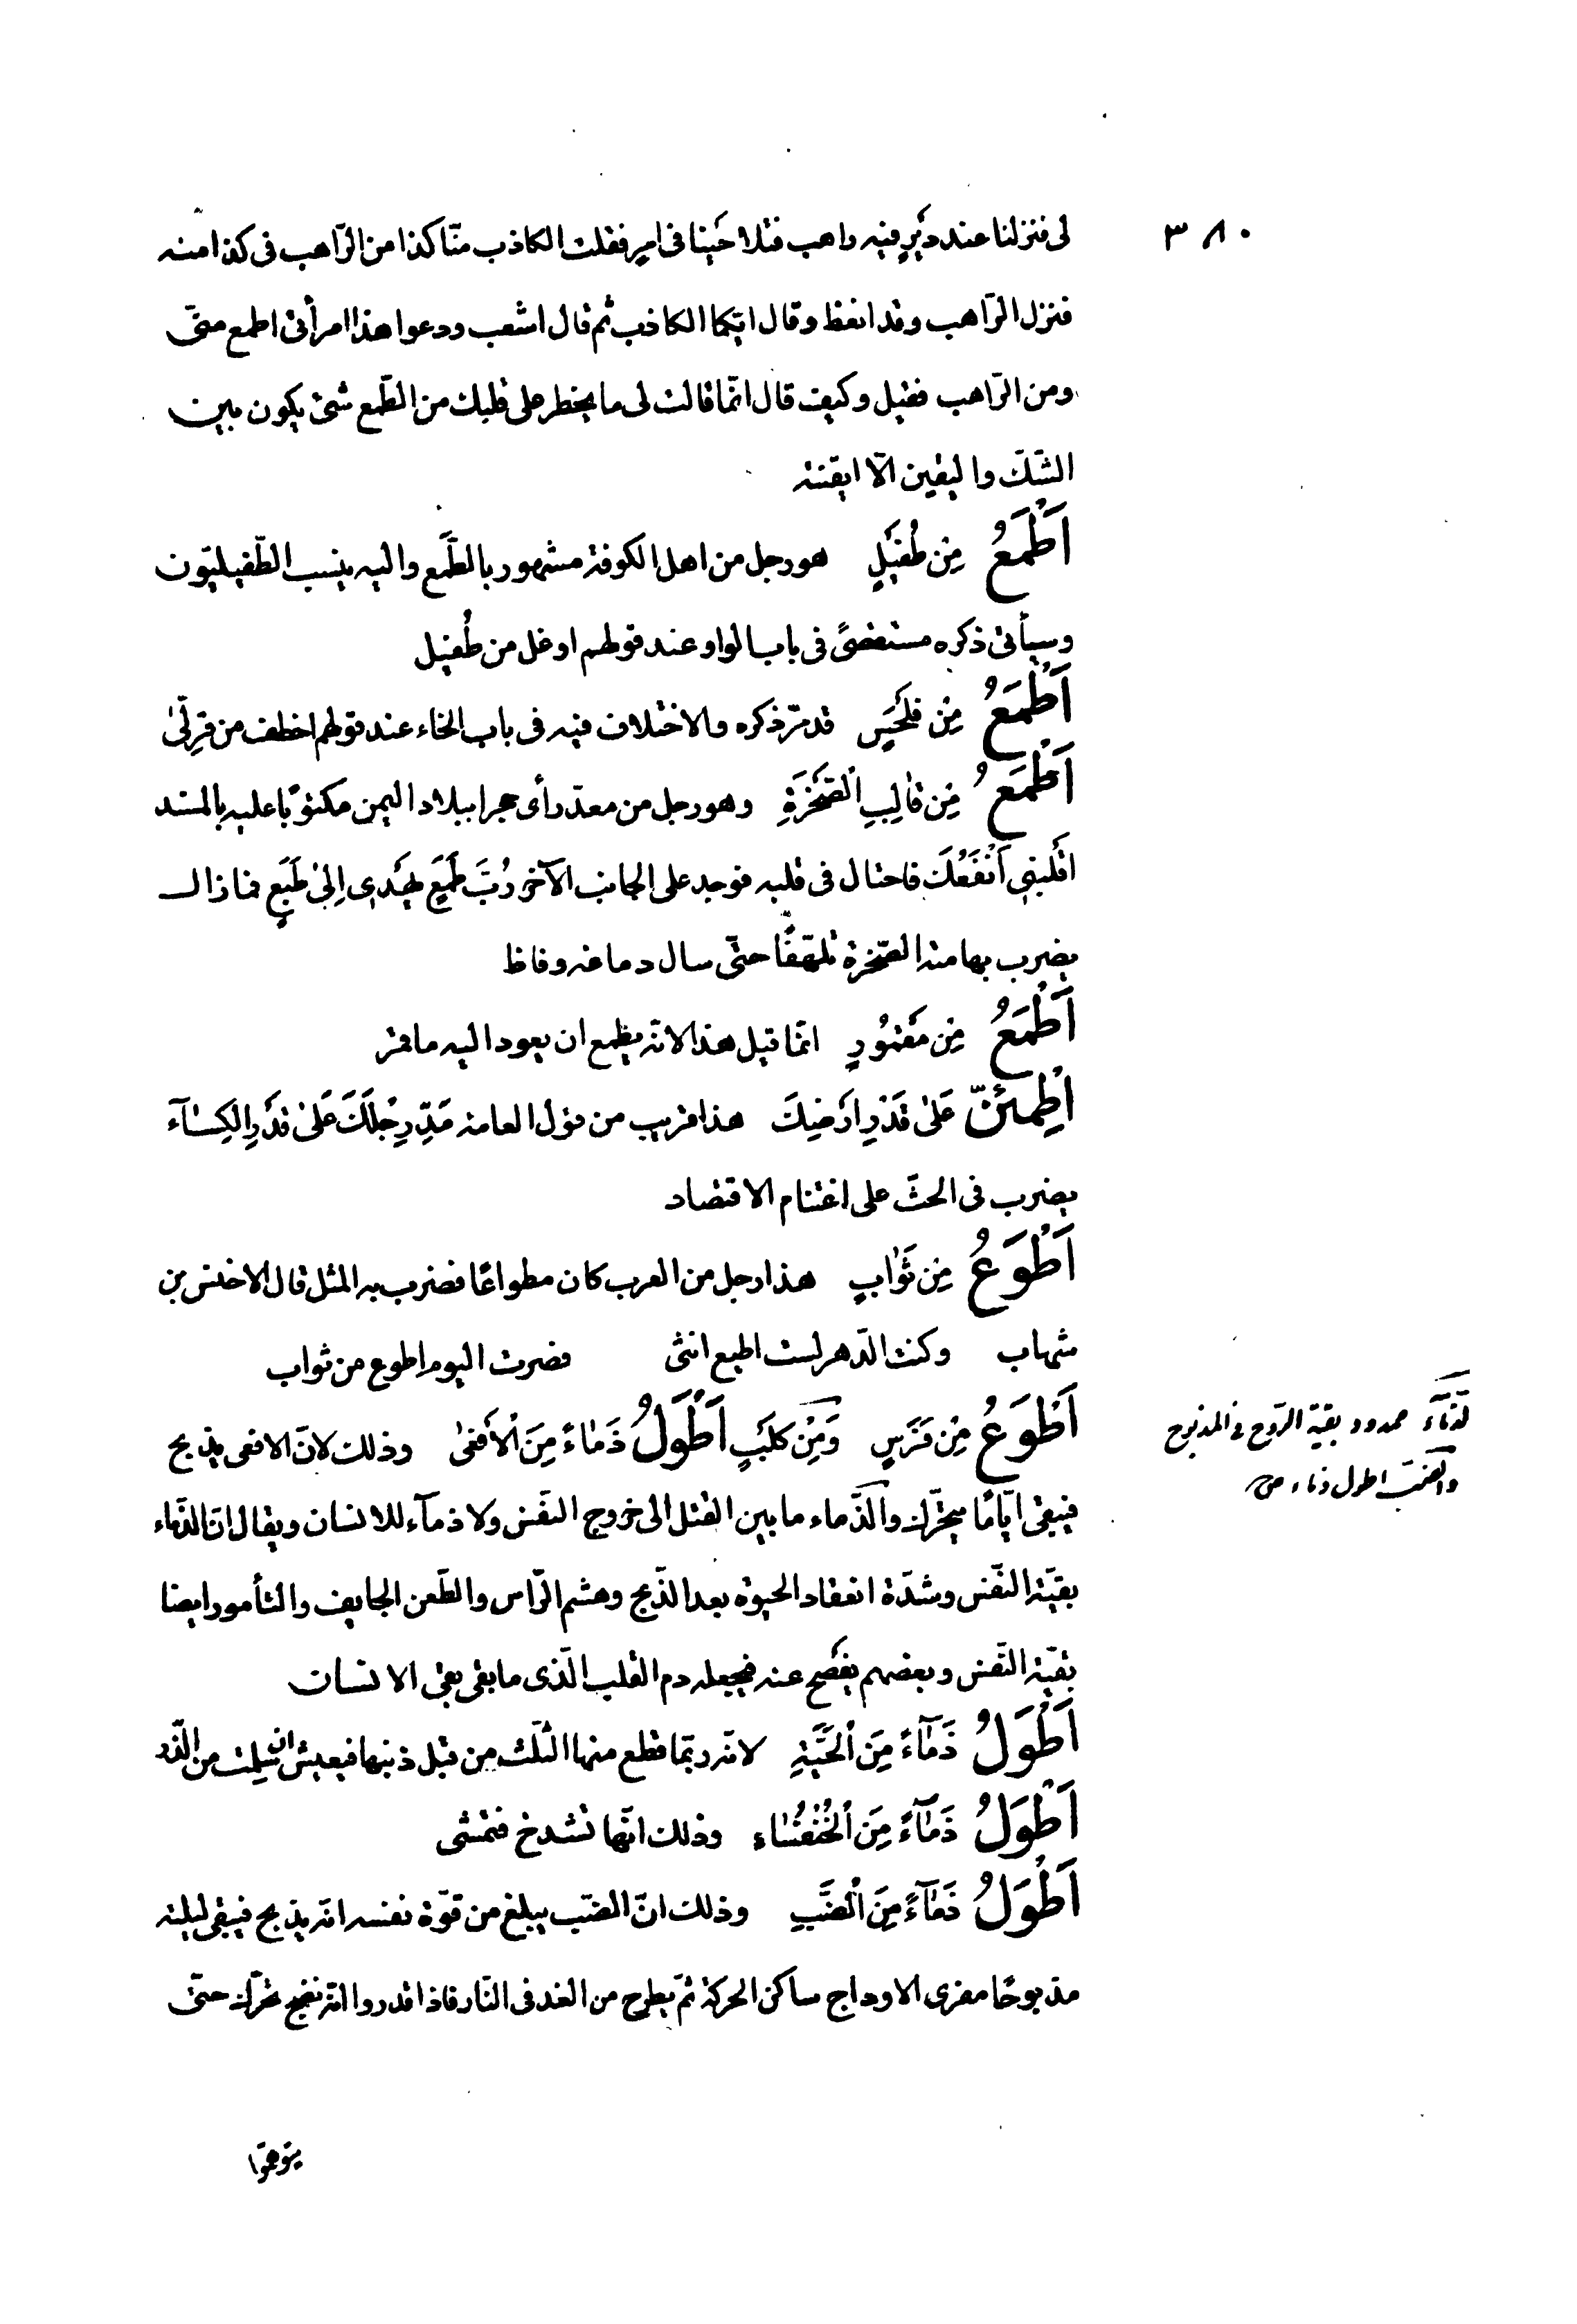 ٣٨٠
لى فنزلنا عند دَيْرٍ فيه راهب فتلاحَيْنا فى امرٍ فقلت الكاذب منّا كذا من الرّاهب فى كذا منه
فنزل الرّاهب وقد انعظ وقال ايّكما الكاذب ثم قال اشعب ودعوا هذا امرأتى اطمع منّى
ومن الرّاهب فقيل وكيف قال انّما قالت لى ما يخطر على قلبك من الطّمع شئ يكون بين
الشّكّ واليقين الّا ايقنته
اَطْمَعُ مِنْ طُفَيْلٍ هو رجل من اهل الكوفة مشهور بالطَّمَع واليه ينسب الطّفيليّون
وسيأتى ذكره مستقصىً فى باب الواو عند قولهم اوغل من طُفيل
اَطْمَعُ مِنْ فَلْحَسٍ قد مرّ ذكره والاختلاف فيه فى باب الخاء عند قولهم اخطف من قِرِلّىٰ
اَطْمَعُ مِنْ قٰالِبِ اْلصَّخْرَةِ وهو رجل من معدّ رأى حجرا ببلاد اليمن مكتوبًا عليه بالمسند
اقْلبنى اَنْفَعْكَ فاحتال فى قلبه فوجد على الجانب الآخر رُبَّ طَمَعٍ يَهْدى اِلىٰ طَبَعٍ فما زال
يضرب بهامته الصّخرة تلهّفًا حتّى سال دماغه وفاظ
اَطْمَعُ مِنْ مَقْمُورٍ انّما قيل هذا لانّه يطمع ان يعود اليه ما قمر
اْطمِئَنّ عَلىٰ قَدْرِ اَرْضِكَ هذا قريب من قول العامة مَدِّ رِجْلَكَ عَلىٰ قَدْرِ الكِسٰآءِ
يضرب فى الحثّ على اغتنام الاقتصاد
اَطْوَعُ مِنْ ثَوٰابٍ هذا رجل من العرب كان مطواعًا فضرب به المثل قال الاخنس بن
شهاب وكنت الدّهر لست اطيع انثى فصرت اليوم اطوع من ثواب
اَطْوَعُ مِنْ فَرَسٍ وَمِنْ كلبٍ اَطْوَلُ ذَمٰاءً مِنَ اْلاَفْعىٰ وذلك لانّ الافعى يذبح
فيبقى ايّامًا يتحرّك والذّماء ما بين القتل الى خروج النّفس ولا ذمآء للانسان ويقال انّ الذّماء
بقيّة النّفس وشدّة انعقاد الحيوة بعد الذّبح وهشم الرّاس والطّعن الجايف والتأمور ايضا
بقيّة النّفس وبعضهم يفصح عنه فيجعله دم القلب الّذى ما بقى بقى الانسان
اَطْوَلُ ذَمٰآءً مِنَ اْلحَيَّةِ لانّه ربّما قطع منها الثّلث من قبل ذنبها فيعيش ان سلمت من الذّر
اَطْوَلُ ذَمٰآءً مِنَ اْلخُنْفُسٰاءِ وذلك انّها تشدخ فتمشى
اَطْوَلُ ذَمٰآءً مِنَ اْلضَّبِ وذلك انّ الضّب يبلغ من قوّة نفسه انّه يذبح فيبقى ليلته
مذبوحًا مفرى الاوداج ساكن الحركة ثمّ يطرح من الغد فى النّار فاذا قدروا انّه نضج تحرّك حتّى
يتوهّموا
الذّمآء ممدود بقيّة الرّوح فى المذبوح
والضّب اطول ذماء